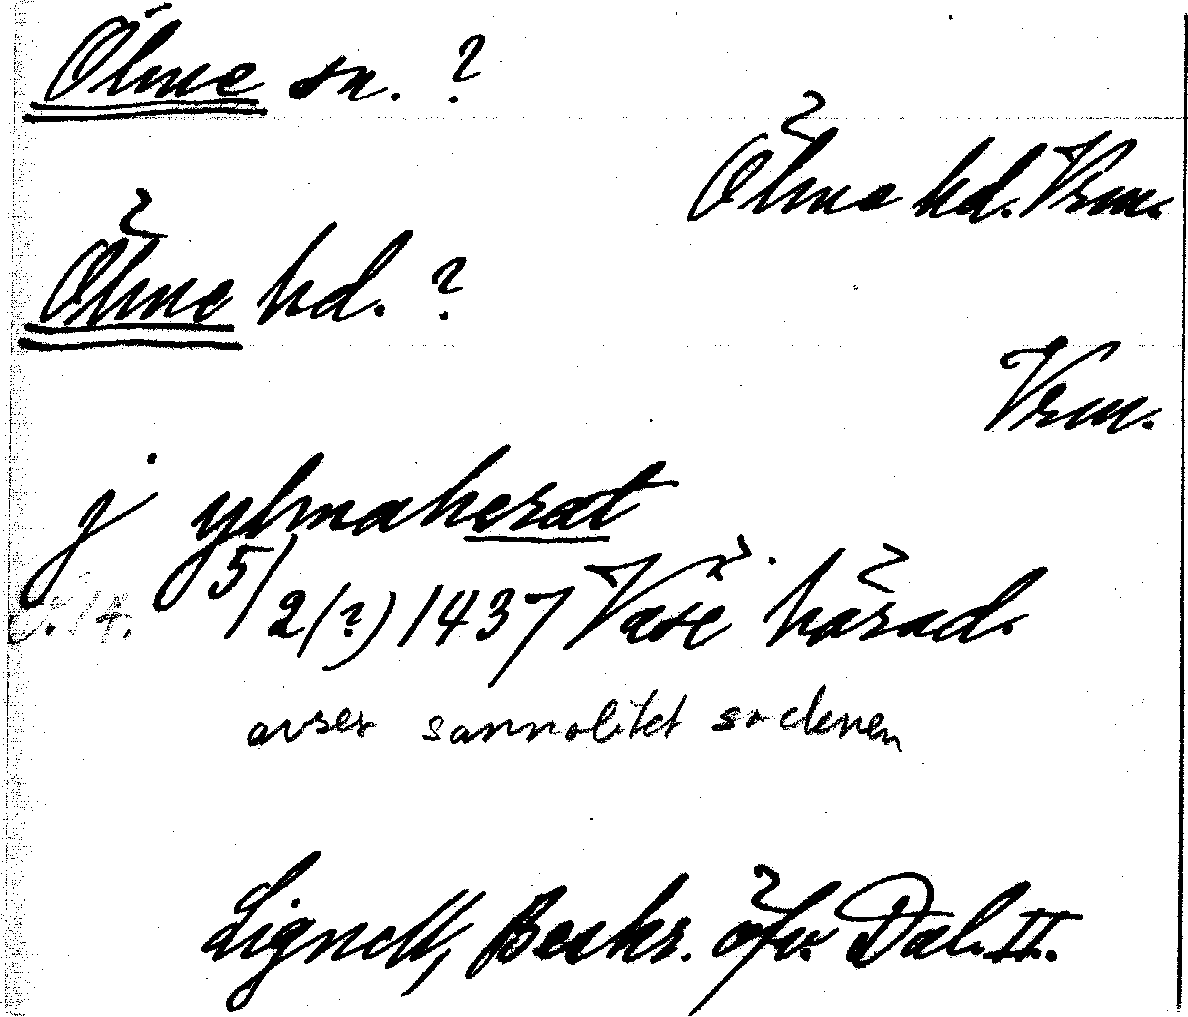 Ölme sn. ?
Ölme hd. Vrm.
Ölme hd. ?
Vrm.
j ylmaherat
5/2(?) 1437 Väse härad.
avser sannolikt socknen
Lignell, Beskr. öfv. Dal. II.